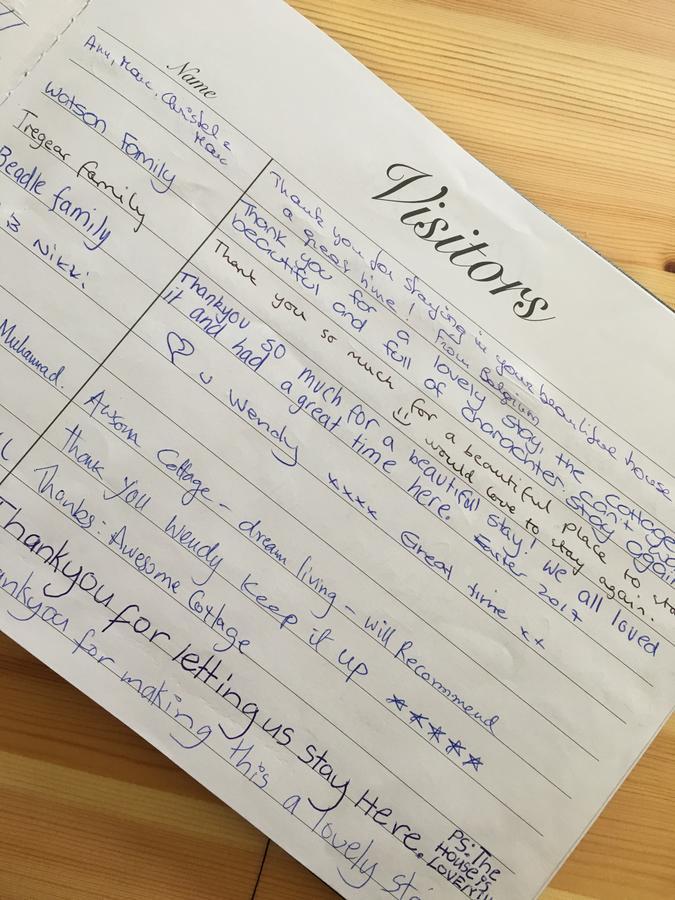 Name
Visitors
Ann, Marc, Christel &
Marc
Thank you for staying in your beautiful house
a great time! From Belgium
Watson Family
Thank you for a lovely stay, the cottage
beautiful and full of charachter. can't
stay again
Tregear family
Thank you so much for a beautiful place to
would love to stay again.
Beadle family
Thankyou so much for a beautiful stay! We all loved
it and had a great time here. Easter 2017
Nikki
♡ u Wendy xxxx Great time xx
Muhammad.
Awsom Cottage - dream living - will Recommend
Thank you Wendy Keep it up *****
Thanks: Awesome Cottage
Thankyou for letting us stay Here.
PS: The
House is
LOVELY!!
for making this a lovely